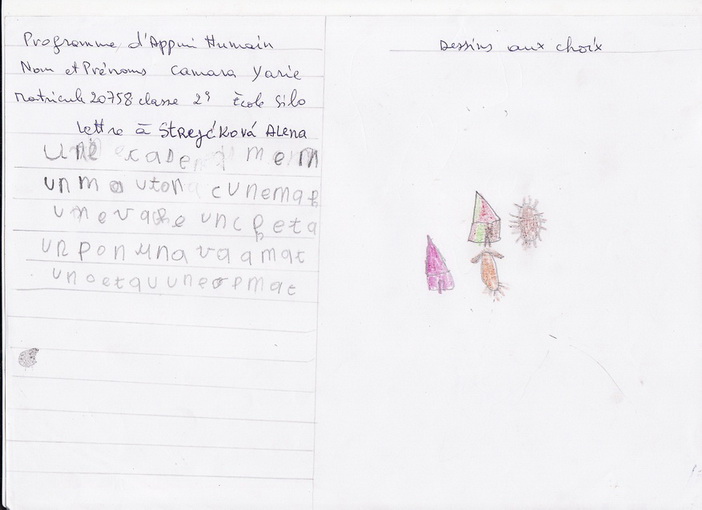 Programme d'Appui Humain
Nom et Prénoms Camara Yarie
Matricule 20758 classe 2e École Silo
Lettre à STREJČKOVÁ ALENA
une mem
un moutona cunemap
unevache uncheta
unpon unavaamat
unoetqu uneopmat
Dessins aux choix